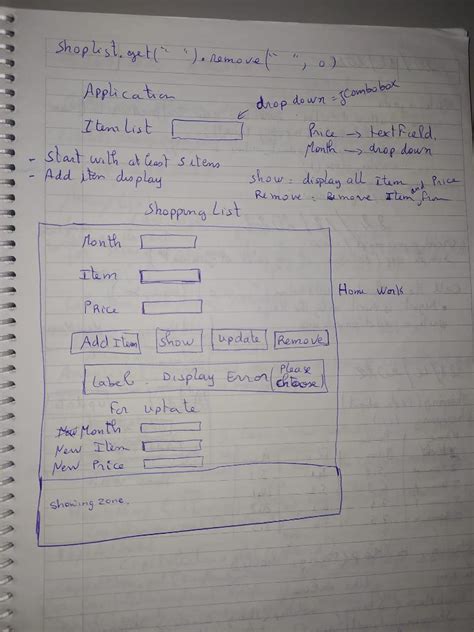 Shoplist.get(" ").remove(" ", 0)
Application
drop down = jCombobox
Item List
Price → textField.
Month → drop down
- Start with at least 5 items
- Add item display
Show : display all Item and Price
Remove : Remove Item from
Shopping List
Month
Item
Home Work
Price
Add Item Show update Remove
Label . Display Error (Please choose)
For uptate
New Month
New Item
New Price
Showing zone.